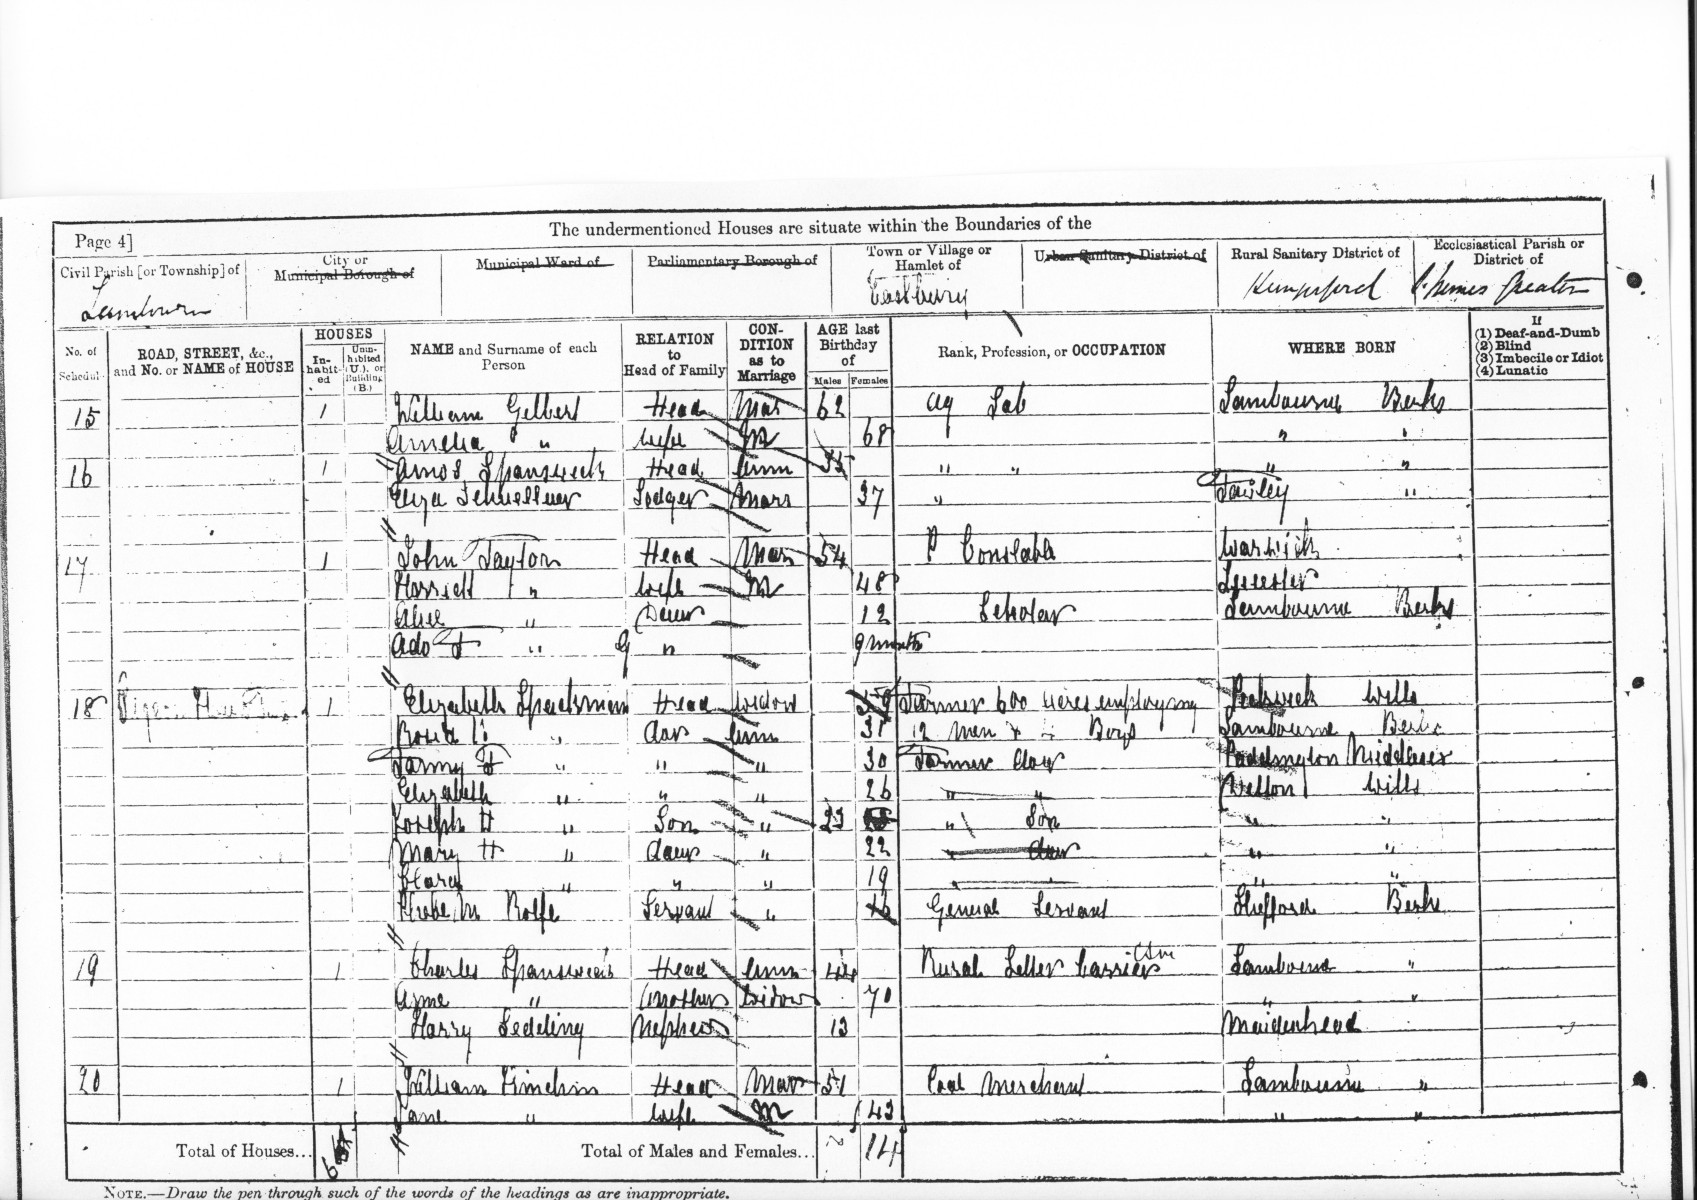 The undermentioned Houses are situate within the Boundaries of the
Page 4]
Civil Parish [or Township] of
City or Municipal Borough of
Municipal Ward of
Parliamentary Borough of
Town or Village or Hamlet of
Urban Sanitary District of
Rural Sanitary District of
Ecclesiastical Parish or District of
Lambourn Eastbury Hungerford
No. of Schedule
ROAD, STREET, &c., and No. or NAME of HOUSE
HOUSES
In-habited
Unin-habited (U.), or Building (B.)
NAME and Surname of each Person
RELATION to Head of Family
CON-DITION as to Marriage
AGE last Birthday of
Males Females
Rank, Profession, or OCCUPATION
WHERE BORN
If
(1) Deaf-and-Dumb
(2) Blind
(3) Imbecile or Idiot
(4) Lunatic
15 1 William Gilbert Head Mar 62 Ag Lab Lambourne Berks
Amelia " Wife M 68 " "
16 1 Amos Spanswick Head Unm " " " "
Eliza Lodger Marr 37 " Fawley "
17 1 John Tayton Head Mar 54 P Constable Warwick
Harriett " Wife M 48 Leicester
Alice " Daur 12 Scholar Lambourne Berks
Ada F " G " 9 months
18 1 Elizabeth Spackman Head Widow 59 Farmer 600 acres employing Wilts
" Dar Unm 31 12 Men & Boys Lambourne Berks
Fanny F " " " 30 Farmer Daur Paddington Middlesex
Elizabeth " " " 26 " " Wilts
Joseph H " Son " 23 " Son " "
Mary H " Daur " 22 " Daur " "
Clara " " " 19 " " " "
Rolfe Servant " 16 General Servant Shefford Berks
19 1 Charles Spanswick Head Unm 44 Rural Letter Carrier Lambourne "
" Mother Widow 70 " "
Harry Nephew 13 Maidenhead
20 1 William Head Mar 51 Coal Merchant Lambourne "
Jane " Wife M 43 " "
Total of Houses... 6
Total of Males and Females... 14
NOTE.—Draw the pen through such of the words of the headings as are inappropriate.